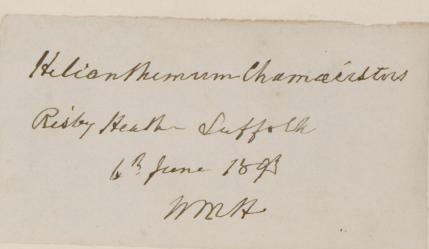 Helianthemum Chamæcistus
Risby Heath Suffolk
6th June 1893
WMH